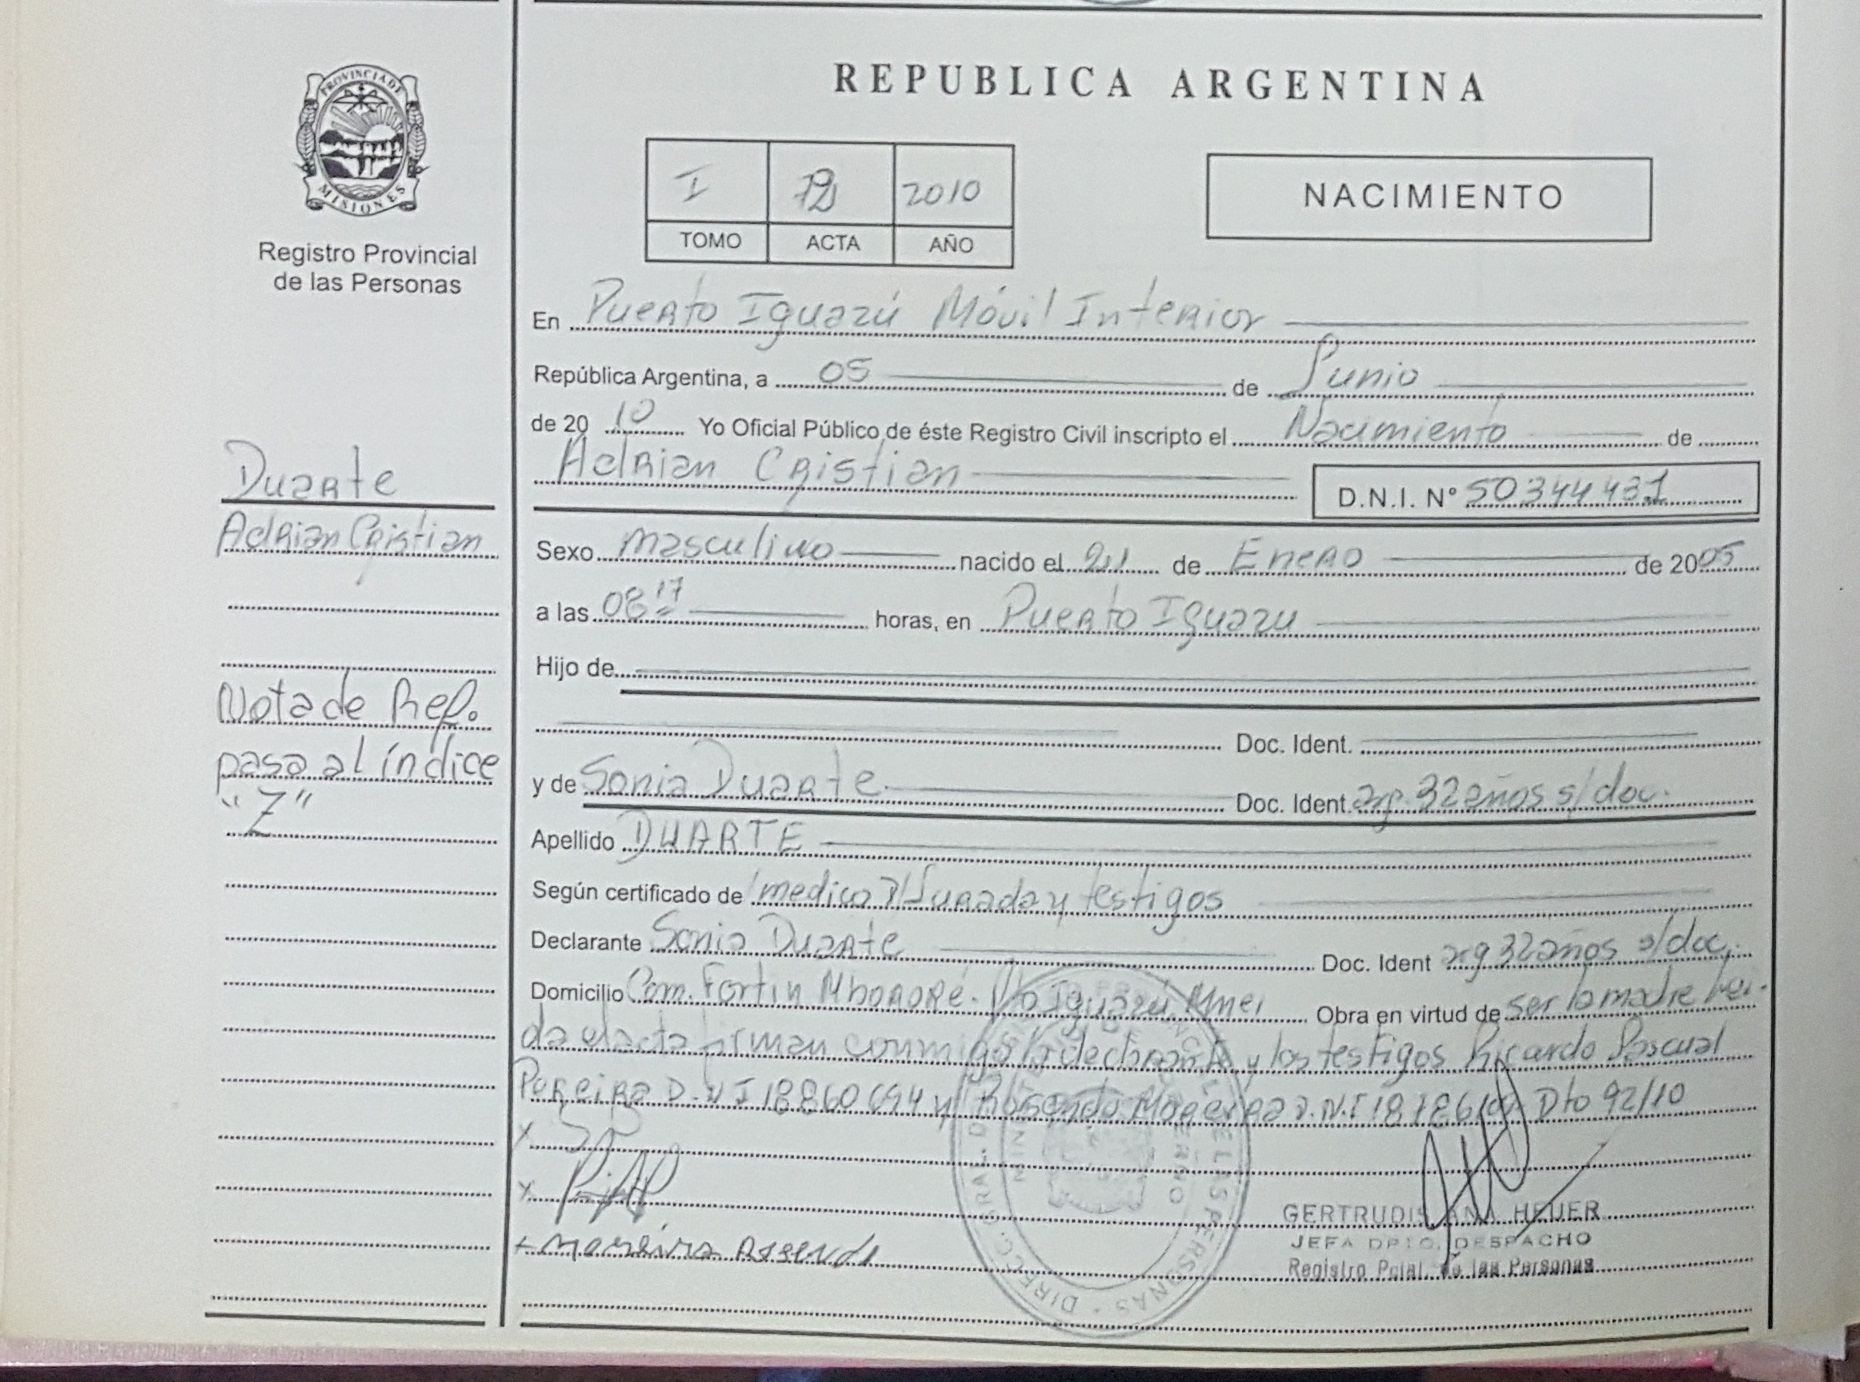 REPUBLICA ARGENTINA
PROVINCIA DE
MISIONES
Registro Provincial
de las Personas
I 2010
TOMO ACTA AÑO
NACIMIENTO
En Puerto Iguazú Móvil Interior
República Argentina, a 05 de Junio
de 20 10 Yo Oficial Público de éste Registro Civil inscripto el Nacimiento de
Adrian Cristian D.N.I. Nº 50344431
Duarte
Adrian Cristian
Nota de Ref.
pasa al índice
"Z"
Sexo masculino nacido el de Enero de 2005
a las 08 17 horas, en Puerto Iguazu
Hijo de
Doc. Ident.
y de Sonia Duarte Doc. Ident. arg. 32 años s/doc.
Apellido DUARTE
Según certificado de medico Jurada y testigos
Declarante Sonia Duarte Doc. Ident arg 32 años s/doc.
Domicilio Com. Fortin Mbororé. Pto Iguazú Mnes Obra en virtud de ser la madre lei-
da el acta firman conmigo la declarante y los testigos Ricardo Pascual
Pereira D.N.I 18860694 y Rosendo Moreira D.N.I Dto 92/10
x
x
+ Moreira
GERTRUDIS ANA HEUER
JEFA DPTO. DESPACHO
Registro Pcial. de las Personas